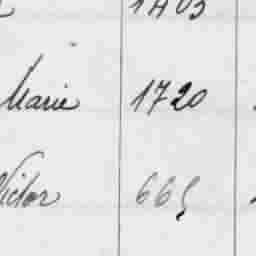 Marie 1720
Victor 665